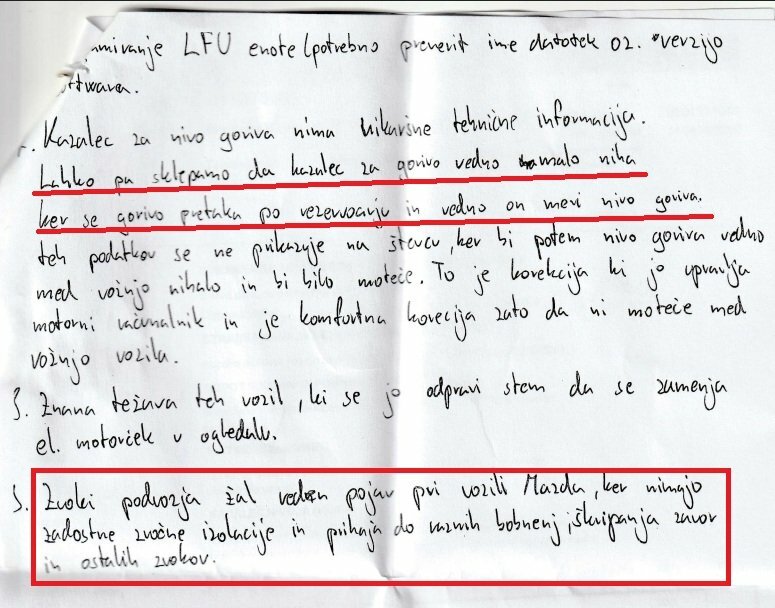 LFU enote (potrebno preverit ime datotek 02. verzijo
Kazalec za nivo goriva nima nikakršne tehnične informacija.
Lahko pa sklepamo da kazalec za gorivo vedno malo niha
ker se gorivo pretaka po rezervoarju in vedno on meri nivo goriva.
teh podatkov se ne prikazuje na števcu, ker bi potem nivo goriva vedno
med vožnjo nihalo in bi bilo moteče. To je korekcija ki jo upravlja
motorni računalnik in je komfortna korecija zato da ni moteče med
vožnjo vozila.
3. Znana težava teh vozil, ki se jo odpravi stem da se zamenja
el. motorček v ogledalu.
5. Zvoki podvozja žal reden pojav pri vozili Mazda, ker nimajo
zadostne zvočne izolacije in prihaja do raznih bobnenj, škripanja zavor
in ostalih zvokov.